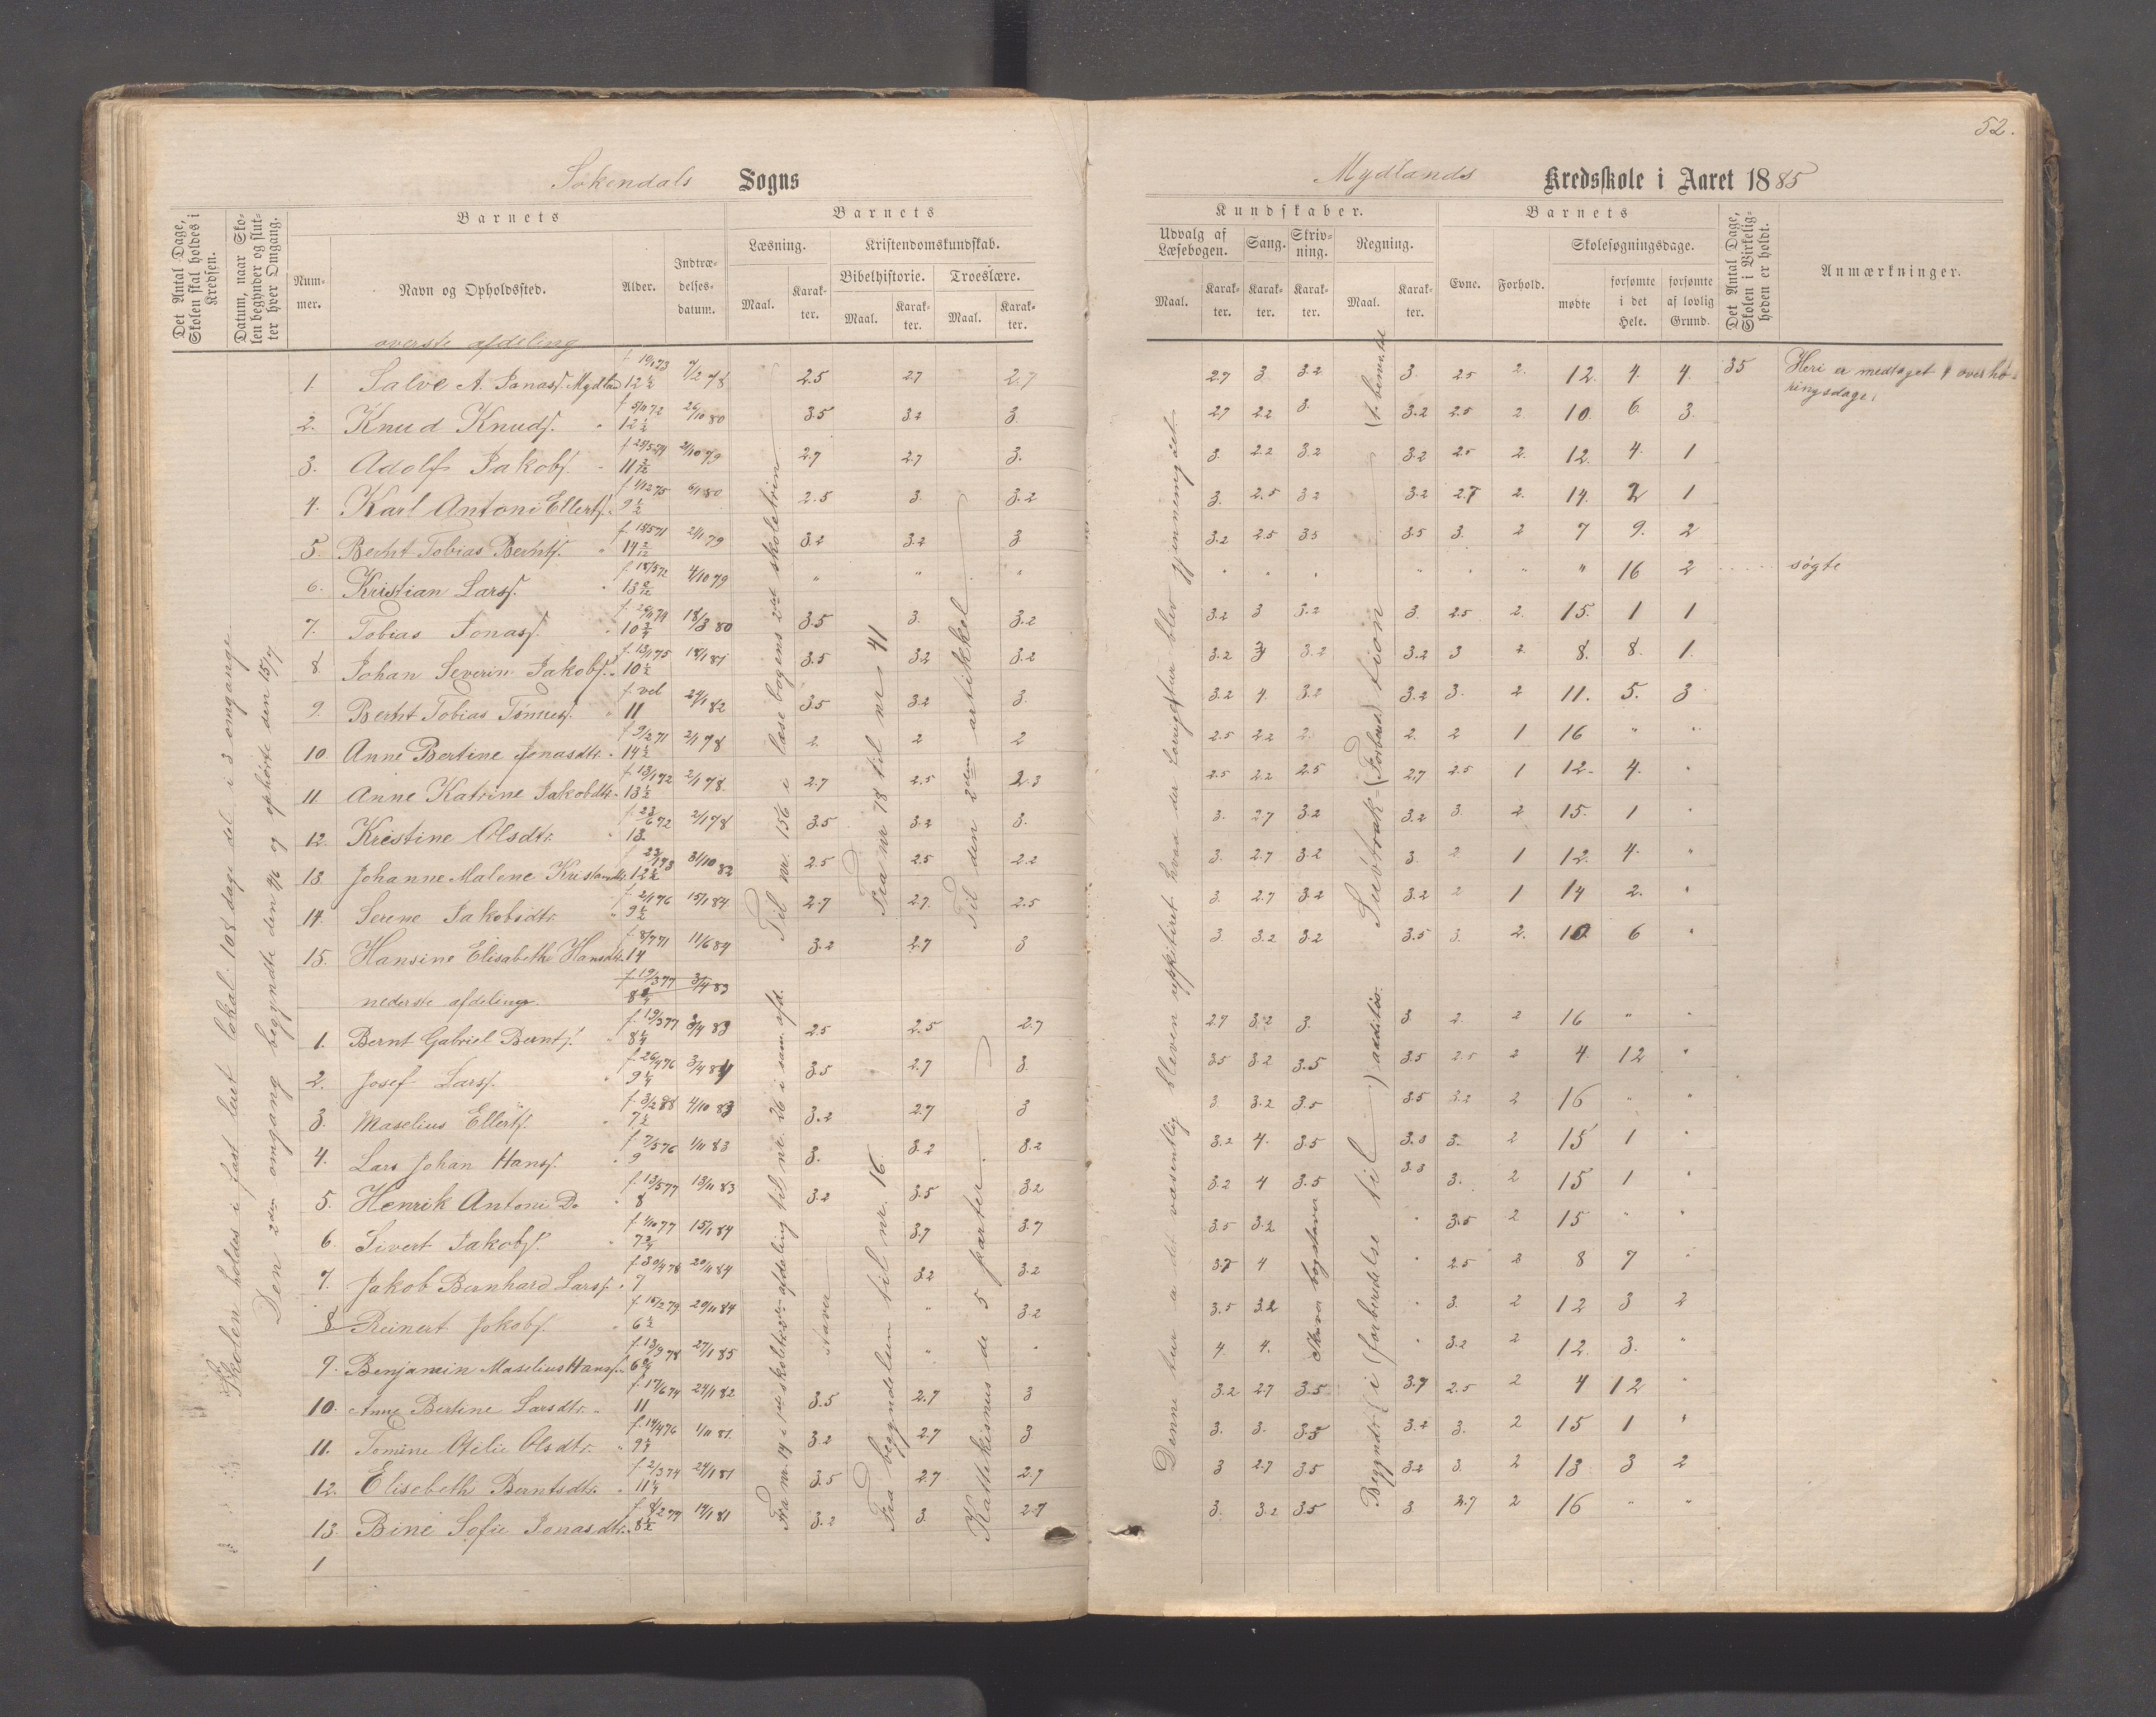 52.
Sokendals Sogns
Mydlands Kredsskole i Aaret 1885
Det Antal Dage, Skolen skal holdes i Kredsen.
Datum, naar Skolen begynder og slutter hver Omgang.
Barnets
Nummer.
Navn og Opholdssted.
Alder.
Indtrædelsesdatum.
Barnets
Læsning.
Kristendomskundskab.
Bibelhistorie.
Troeslære.
Maal. Karakter. Maal. Karakter. Maal. Karakter.
Kundskaber.
Udvalg af Læsebogen.
Sang.
Skrivning.
Regning.
Maal. Karakter. Karakter. Karakter. Maal. Karakter.
Barnets
Evne.
Forhold.
Skolesøgningsdage.
mødte
forsømte i det Hele.
forsømte af lovlig Grund.
Det Antal Dage, Skolen i Virkeligheden er holdt.
Anmærkninger.
Skolen holdes i fast leiet lokal 108 dage del. i 3 omgange
Den 2den omgang begyndte den og ophørte den 15/7
øverste afdeling
1. Salve A. Jonass. Mydland 12 1/2 2.5 2.7 2.7 2.7 3 3.2 3. 2.5 2. 12. 4. 4. 35
Heri er medtaget 1 overhøringsdage.
2. Knud Knuds. " 12 1/2 26/10 80 3.5 3.2 3. 2.7 2.2 3. 3.2 2.5 2. 10. 6. 3.
3. Adolf Jakobs. " 11 2/12 2/10 79 2.7 2.7 3. 3. 2.2 3.2 3.2 2.5 2. 12. 4. 1
4. Karl Antoni Ellerts. " 9 1/2 6/1 80 2.5 3 3.2 3. 2.5 3.2 3.2 2.7 2. 14. 2 1
5. Bernt Tobias Bernts. " 14 2/12 2/1 79 3.2 3.2 3 3.2 2.5 3.5 3.5 3. 2 7 9. 2
6. Kristian Larss. " 4/10 79 " " " " " " " " " " 16 2 søgte
7. Tobias Jonass. " 10 3/4 18/3 80 3.5 3. 3.2 3.2 3 3.2 3. 2.5 2. 15. 1 1
8 Johan Severin Jakobs. " 10 1/2 18/1 81 3.5 3.2 3.2 3.2 3 3.2 3.2 3 2 8. 8. 1.
9. Bernt Tobias Tønness. " f. vel 11 24/1 82 3.5 3.2 3. 3.2 4. 3.2 3.2 3. 2 11. 5. 3
10. Anne Bertine Jonasdtr. " 14 1/2 2/1 78 2. 2 2 2.5 2.2 2. 2. 2 1 16 " "
11. Anne Katrine Jakobdtr. " 13 1/2 2/1 78. 2.7 2.5 2.3 2.5 2.2 2.5 2.7 2.5 1 12. 4. "
12. Kristine Olsdtr. " 13 2/1 78 3.5 3.2 3. 3. 2.7 3.2 3.2 3. 2 15. 1 "
13. Johanne Malene 12 1/2 31/10 82 2.5 2.5 2.2 3. 2.7 3.2 3. 2 1 12. 4. "
14. Serene Jakobsdtr. " 9 1/2 15/1 84 2.7 2.7. 2.5 3. 2.7 3.2 3.2 2 1 14 2. "
15. Hansine Elisabeth Hansdtr. 14 11/6 84 3.2 2.7 3 3 3.2 3.2 3.5 3. 2. 10 6 "
nederste afdeling.
1. Bernt Gabriel Bernts. " 8 1/4 3/4 83 2.5 2.5 2.7 2.7 3.2 3. 3 2. 2 16 " "
2. Josef Larss. " 9 1/4 3.5 2.7 3. 3.5 3.2 3.5 3.5 2.5 2 4. 12 "
3. Maselius Ellerts. " 7 1/2 4/10 83 3.2 2.7 3 3 3.2 3.5 3.5 3.2 2 16 " "
4. Lars Johan Hanss. " 9 1/11 83 3. 3.2 3.2 3.2 4. 3.5 3.3 3. 2 15 1 "
5. Henrik Antoni Do " 8 13/11 83 3.2 3.5 3.2 3.2 4 3.5 3.3 3. 2 15 1 "
6. Sivert Jakobs. " 7 3/4 15/1 84 3.7 3.7 3.5 3.2 " 3.5 2 15 " "
7. Jakob Bernhard Larss. " 7 20/11 84 3.2 3.2 3.7 4 2.5 2 8 7 "
8 Reinert Jokobs. " 6 1/2 20/11 84 " 3.2 3.5 3.2 " 3. 2 12 3 2
9. Benjamin Maselius Hanss. 27/1 85 " " 4. 4. " 3.2 2 12. 3. "
10. Anne Bertine Larsdtr. " 11 24/1 82 3.5 2.7 3 3.2 2.7 3.5 3.7 2.5 2 4 12 "
11. Tomine Otilie Olsdtr. " 9 1/4 1/11 81. 3.2 2.7 3 3. 3. 3.5 3.2 3. 2 15 1 "
12. Elisebeth Berntsdtr. " 11 1/4 24/1 81 3.5 2.7 2.7 3 2.7 3.5 3.2 3. 2 13 3 2
13. Bine Sofie Jonasdtr. 8 1/2 3.2 3. 2.7 3. 3.2 3.5 3 2.7 2 16 " "
1
Til nr. 156 i læsebogens 2det skoletrin
Fra nr 78 til nr 41
Til den 2den artikkel
Fra nr. 14 i 1ste skoletrins afdeling til nr. 26 i sam. afd.
staver
Fra begyndelsen til nr. 16.
Kattekismus de 5 parter.
Denne tur er det væsentlig bleven repetiret hvad der forrige tur blev gjennemgaaet.
Subtrak- (Forbered.) tion
(1. benevnt
Begyndt (i forberedelse til) addition.
Skriver bogstaver